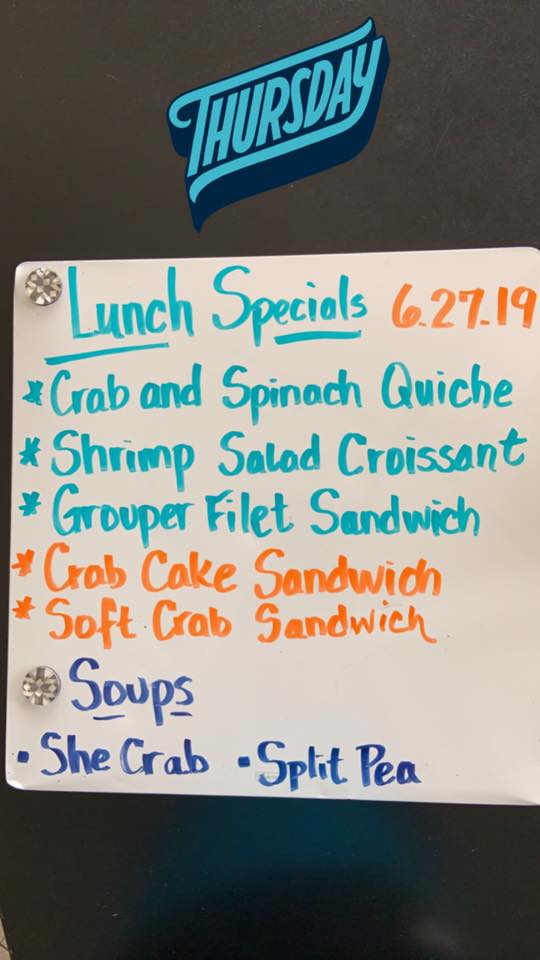 THURSDAY
Lunch Specials 6.27.19
* Crab and Spinach Quiche
* Shrimp Salad Croissant
* Grouper Filet Sandwich
* Crab Cake Sandwich
* Soft Crab Sandwich
Soups
• She Crab • Split Pea